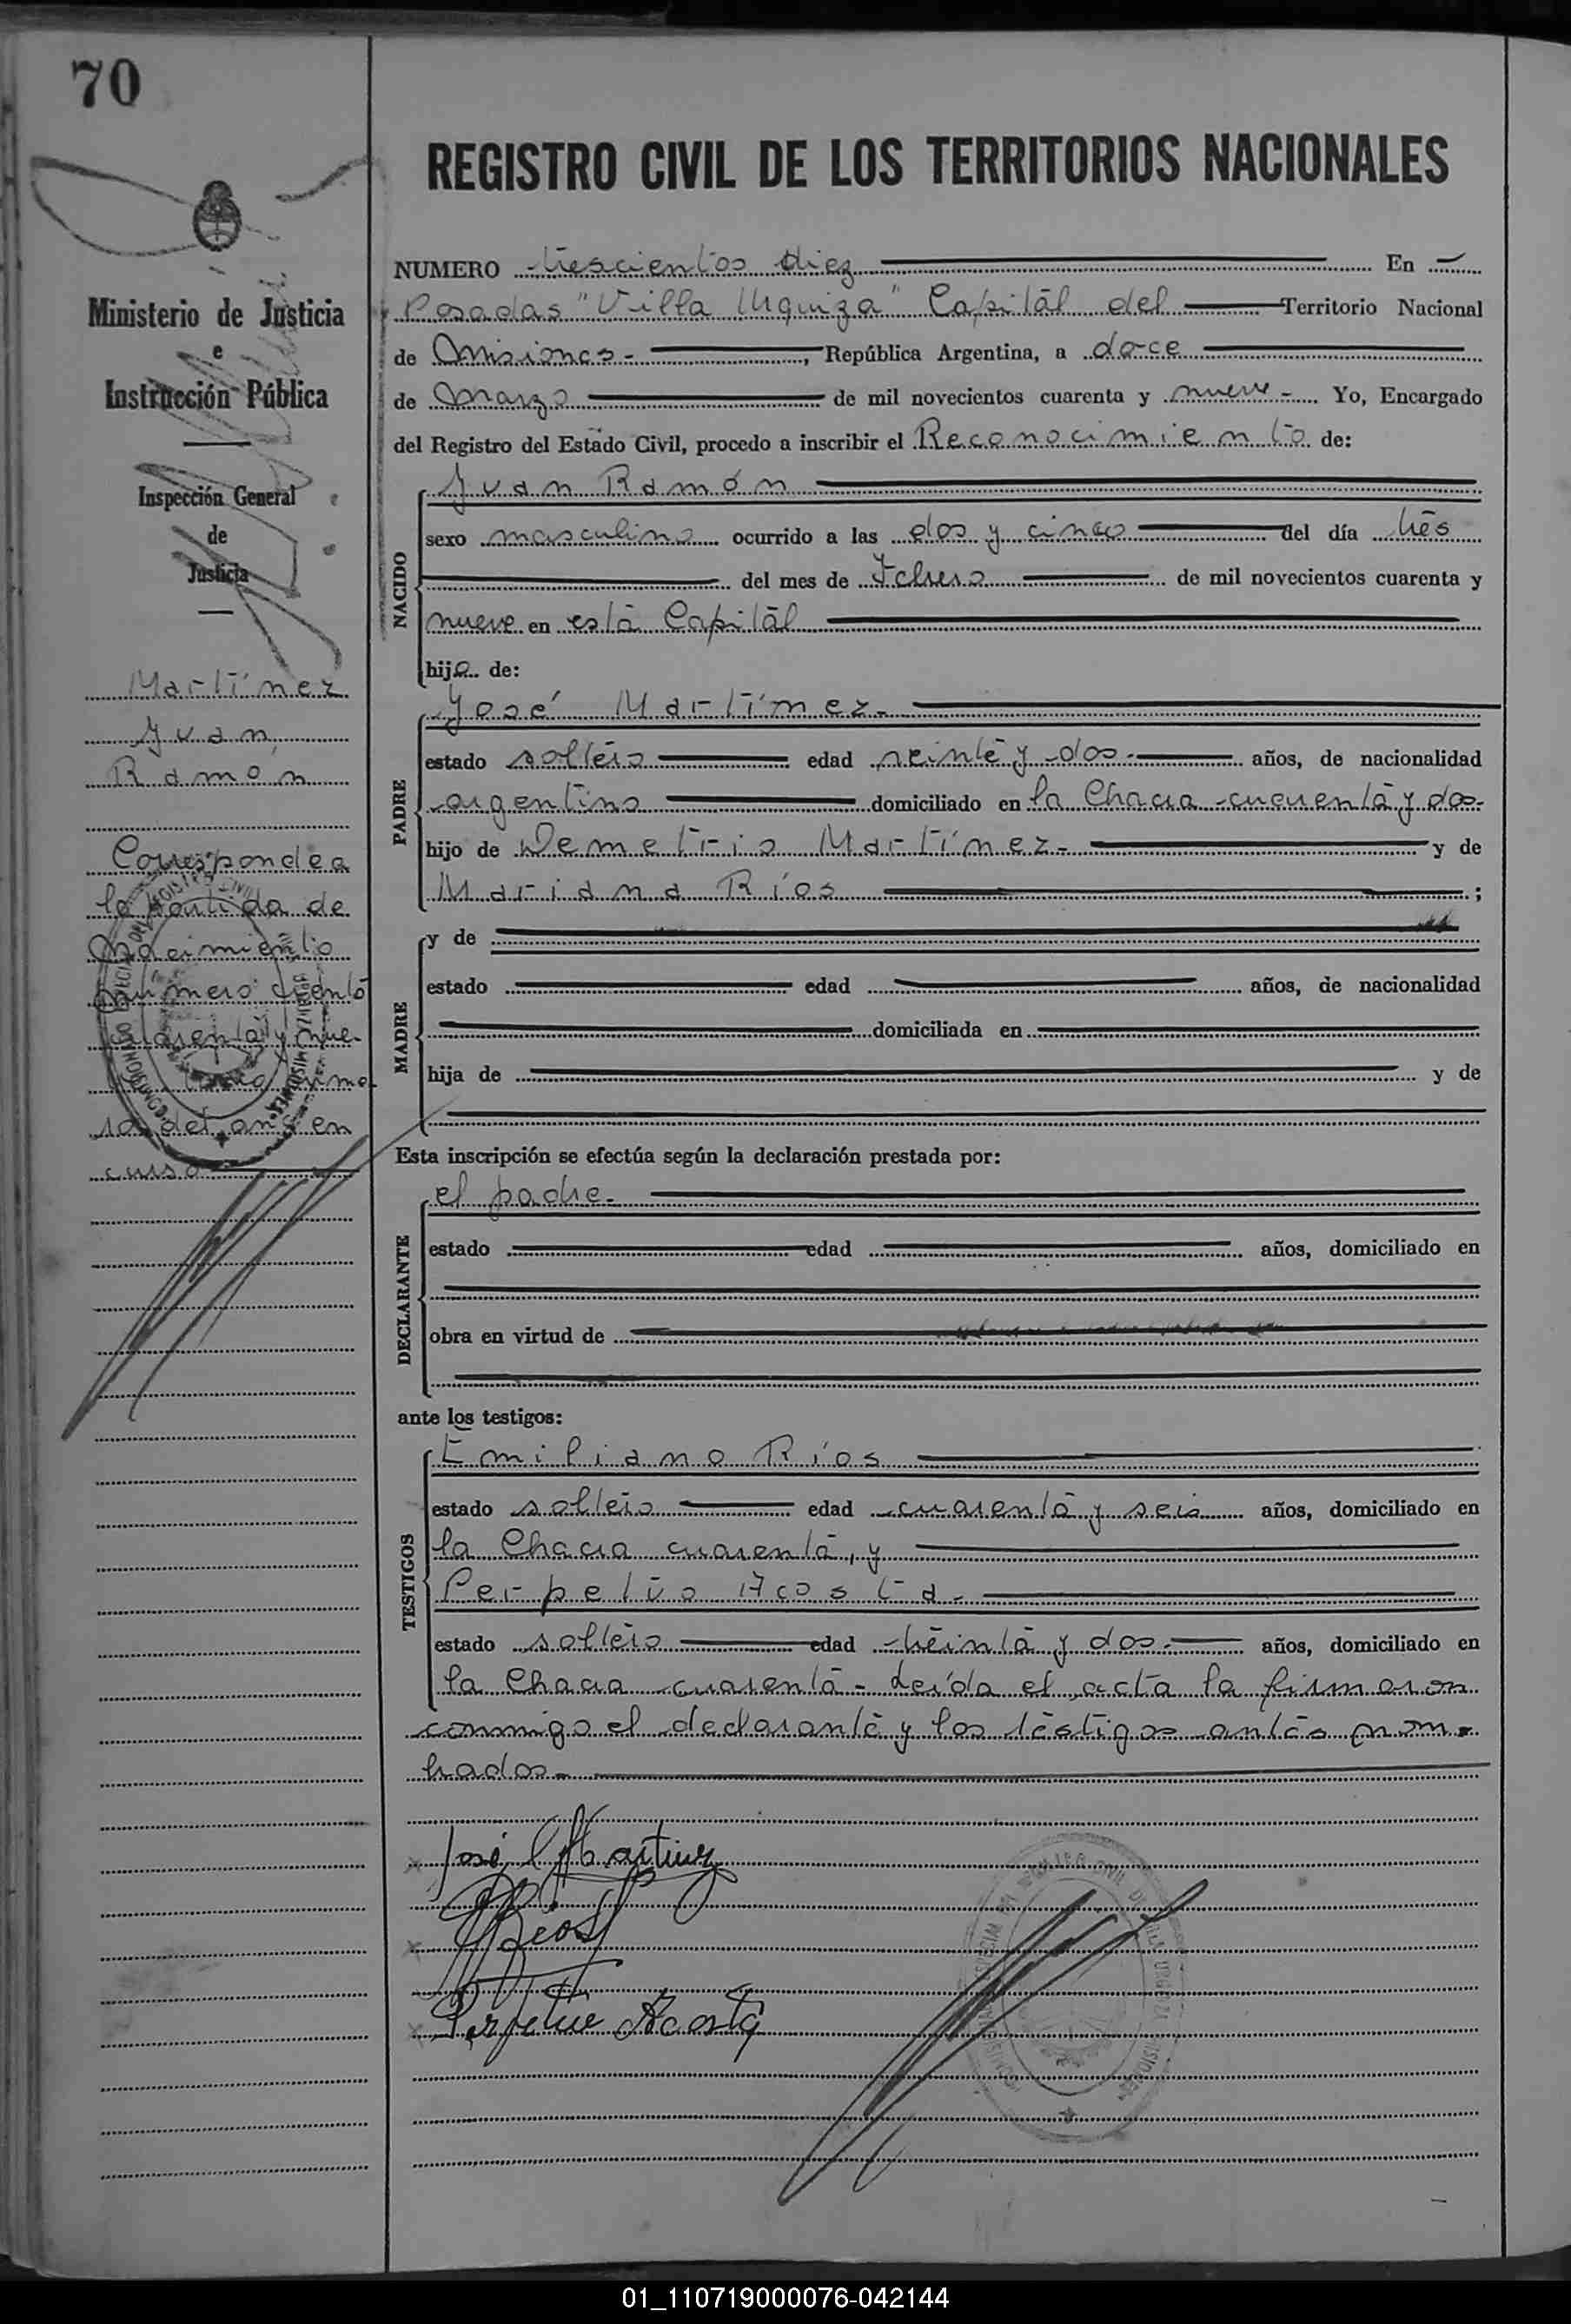 70
REGISTRO CIVIL DE LOS TERRITORIOS NACIONALES
NUMERO trescientos diez En
Posadas "Villa Urquiza" Capital del Territorio Nacional
de Misiones.-, República Argentina, a doce
de Marzo de mil novecientos cuarenta y nueve.- Yo, Encargado
del Registro del Estado Civil, procedo a inscribir el Reconocimiento de:
NACIDO
Juan Ramón
sexo masculino ocurrido a las dos y cinco del día tres
del mes de Febrero de mil novecientos cuarenta y
nueve en esta Capital
hijo de:
PADRE
José Martínez.-
estado soltero edad veinte y dos.- años, de nacionalidad
argentino domiciliado en la Chacra cuarenta y dos.-
hijo de Demetrio Martínez.- y de
Mariana Ríos ;
MADRE
y de
estado edad años, de nacionalidad
domiciliada en
hija de y de
Esta inscripción se efectúa según la declaración prestada por:
DECLARANTE
el padre.-
estado edad años, domiciliado en
obra en virtud de
ante los testigos:
TESTIGOS
Emiliano Ríos
estado soltero edad cuarenta y seis años, domiciliado en
la Chacra cuarenta, y
Perpetuo Acosta.-
estado soltero edad treinta y dos.- años, domiciliado en
la Chacra cuarenta.- Leída el acta la firmaron
conmigo el declarante y los testigos antes nom-
brados.-
José Martinez
Ríos
Perpetuo Acosta
Ministerio de Justicia
e
Instrucción Pública
Inspección General
de
Justicia
Martínez
Juan
Ramón
Corresponde a
la partida de
Nacimiento
número ciento
cuarenta y nue-
ve
del año en
curso
01_110719000076-042144